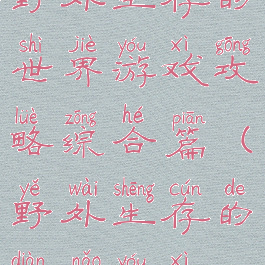 野外生存的
shì jiè yóu xì gōng
世界游戏攻
lüè zōng hé piān
略综合篇（
yě wài shēng cún de
野外生存的
diàn nǎo yóu xì